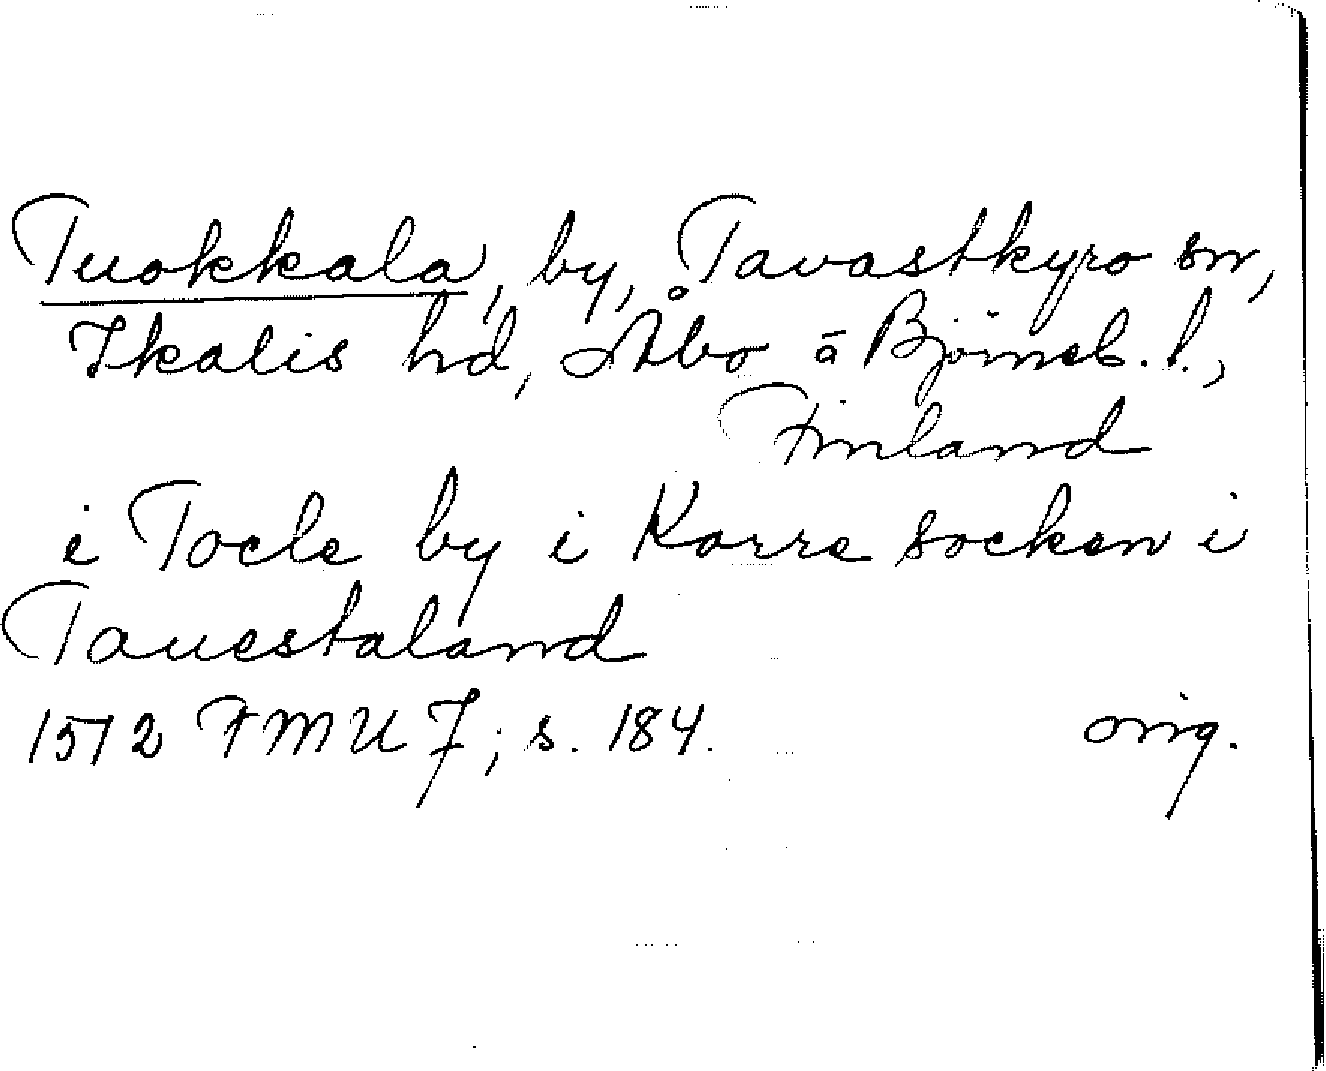 Tuokkala, by, Tavastkyro sn,
Ikalis hd, Åbo o Björneb. l.,
Finland
i Tocle by i Korre socken i
Tauestaland
1572 FMU 7; s. 184. orig.